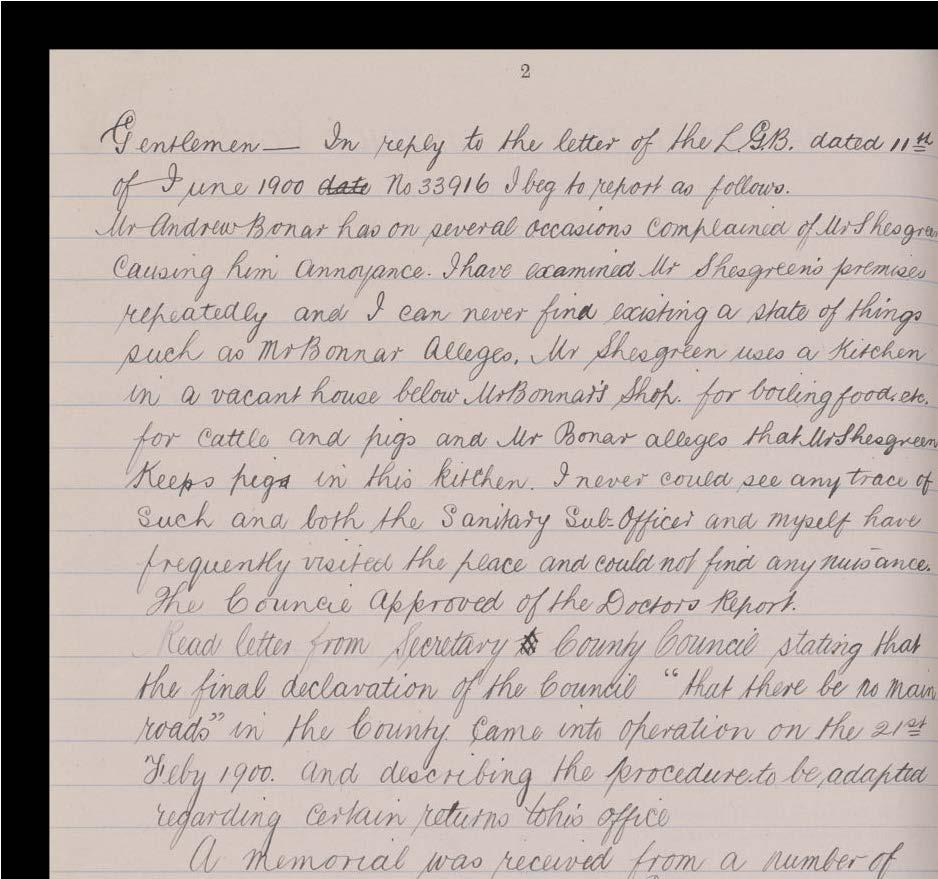 2
Gentlemen — In reply to the letter of the L.G.B. dated 11th
of June 1900 date No 33916 I beg to report as follows.
Mr Andrew Bonar has on several occasions complained of Mr Shesgreen
Causing him Annoyance. I have examined Mr Shesgreen's premises
repeatedly and I can never find existing a state of things
such as Mr Bonnar Alleges. Mr Shesgreen uses a Kitchen
in a vacant house below Mr Bonnar's Shop. for boiling food. etc.
for Cattle and pigs and Mr Bonar alleges that Mr Shesgreen
Keeps pigs in this kitchen. I never could see any trace of
Such and both the Sanitary Sub-Officer and myself have
frequently visited the place and could not find any nuisance.
The Councie Approved of the Doctors Report.
Read letter from Secretary County Council stating that
the final declaration of the Council "that there be no main
roads" in the County. Came into operation on the 21st
Feby 1900. And describing the procedure to be adapted
regarding certain returns to his office
A memorial was received from a number of